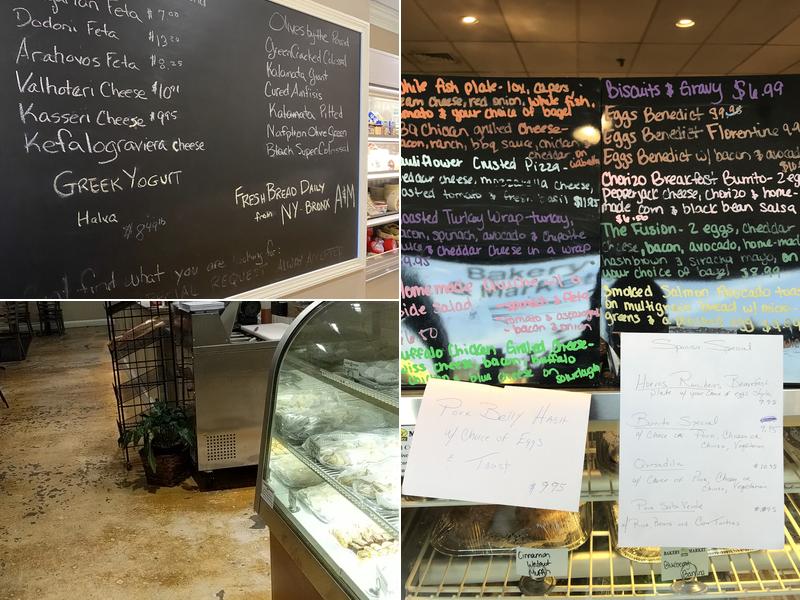 Feta $7.00
Dodoni Feta
Arahovas Feta
Valhoteri Cheese
Kasseri Cheese $9.95
Kefalograviera cheese
GREEK YOGURT
Halva
Olives by the Pound
Green Cracked Colossal
Kalamata Giant
Cured Amfisis
Kalamata Pitted
Nafplion Olive Green
Black Super Colossal
FRESH BREAD DAILY
from NY-BRONX A&M
find what you are looking for:
SPECIAL REQUEST ALWAYS ACCEPTED
White Fish Plate- lox, capers,
cheese, red onion, white fish,
& your choice of bagel
Chicken grilled Cheese-
bacon, ranch, bbq sauce, chicken &
cheddar on
Cauliflower Crusted Pizza-
cheddar cheese, mozzarella cheese,
roasted tomato & fresh basil $11.95
Roasted Turkey Wrap- turkey,
bacon, spinach, avocado & Chipotle
& Cheddar Cheese in a wrap
Homemade Quiche w/ a
side Salad
- spinach & feta
- tomato & asparagus
- bacon & onion
Buffalo Chicken Grilled Cheese-
swiss cheese, bacon, buffalo
chicken & blue cheese on sourdough
Biscuits & Gravy $6.99
Eggs Benedict
Eggs Benedict Florentine
Eggs Benedict w/ bacon & avocado
Chorizo Breakfast Burrito- 2 eggs
Pepperjack cheese, chorizo & home-
made corn & black bean salsa
The Fusion- 2 eggs, cheddar
cheese, bacon, avocado, home-made
hashbrown & siracha mayo, on
your choice of bagel $8.99
Smoked Salmon Avocado toast
on multigrain bread w/ micro-
greens &
Pork Belly Hash
w/ Choice of Eggs
& Toast
$9.95
Spanish Special
Huevos Rancheros Breakfast
Plate w/ your Choice of eggs Style
9.95
Burrito Special
9.95
w/ Choice of Pork, Chicken or
Chorizo, Vegetarian
Quesadilla $10.95
w/ Choice of Pork, Chicken or
Chorizo, Vegetarian
Pork Salsa Verde
w/ Rice Beans and Corn Tortillas
Cinnamon
Walnut
Muffin
BAKERY MARKET
Blueberry